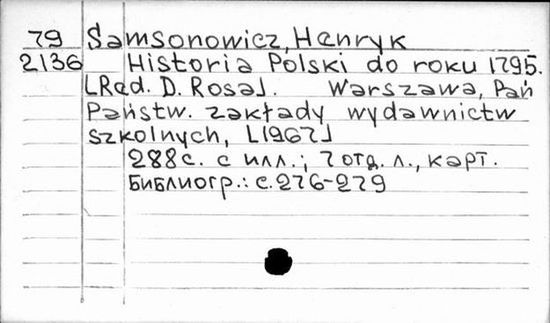 79 Samsonowicz, Henryk
2136 Historia Polski do roku 1795.
[Red. D. Rosa]. Warszawa, Pań
Państw. zakłady wydawnictw
szkolnych, [1967]
288 с. с илл.; 7 отд. л., карт.
Библиогр.: с. 276-279